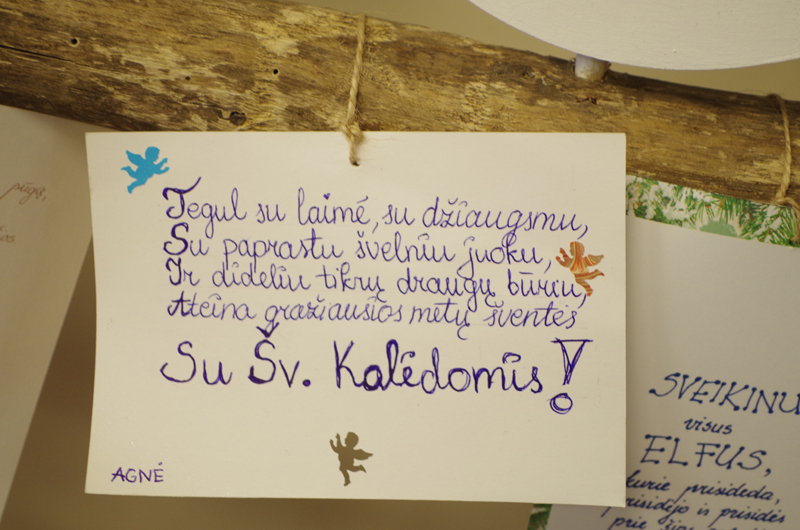 Tegul su laime, su džiaugsmu,
Su paprastu švelniu juoku,
Ir dideliu tikrų draugų būriu,
Ateina gražiausios metų šventės
Su Šv. Kalėdomis!
AGNĖ
pūgis,
SVEIKINU
visus
ELFUS,
kurie prisideda,
prisidėjo ir prisidės
prie